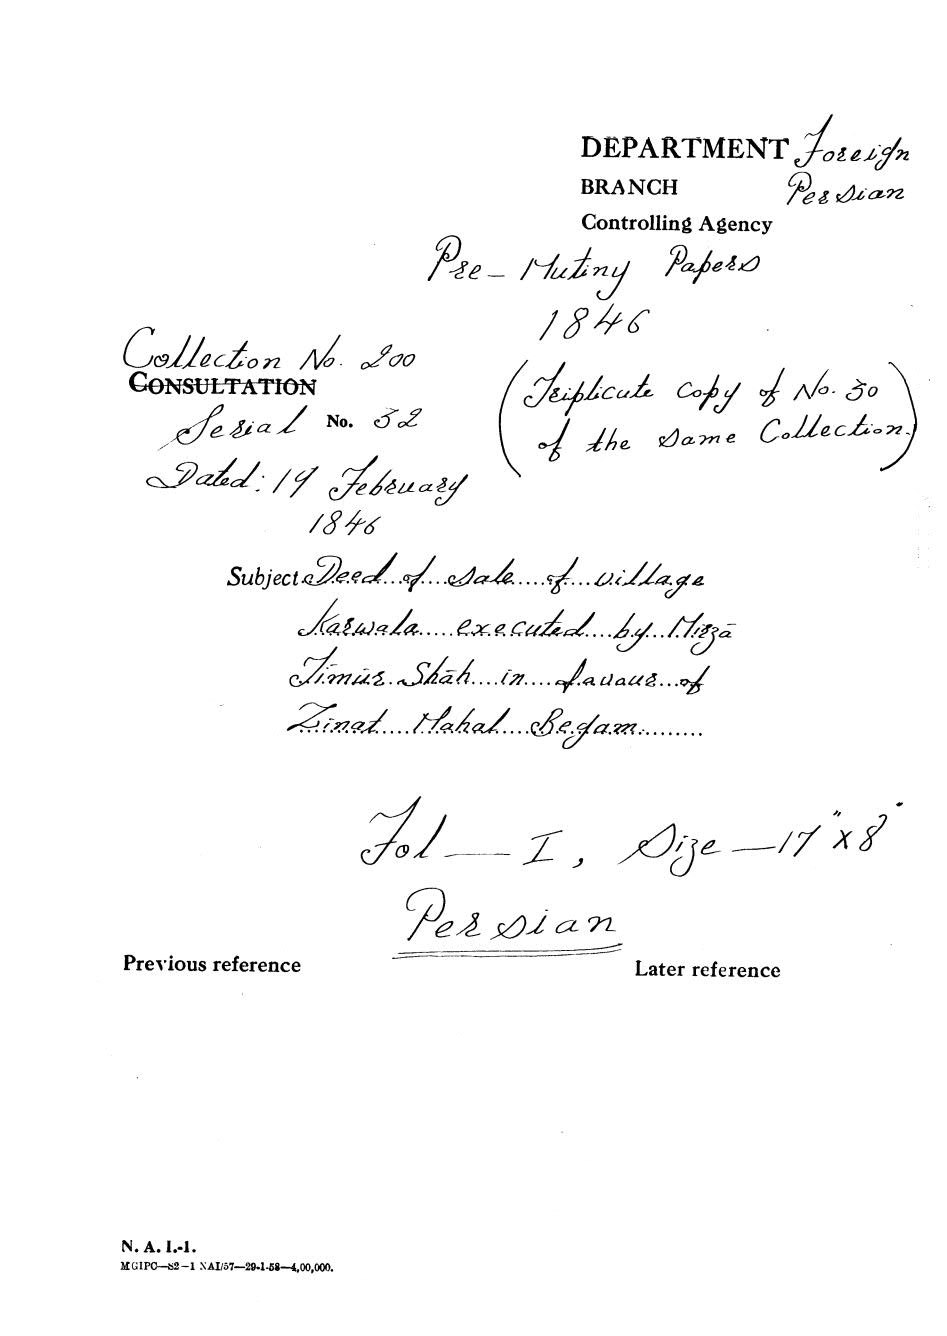 DEPARTMENT Foreign
BRANCH Persian
Controlling Agency
Pre - Mutiny Papers
1846
Collection No. 200
CONSULTATION
Serial No. 32
(Triplicate copy of No. 30
of the same Collection.)
Dated: 19 February
1846
Subject Deed of sale of village
Karwala executed by Mirzā
Timūr Shāh in favour of
Zinat Mahal Begam
Fol — I, Size — 17" x 8"
Persian
Previous reference
Later reference
N. A. I.-1.
MGIPC—82—1 NAI/57—29-1-58—4,00,000.